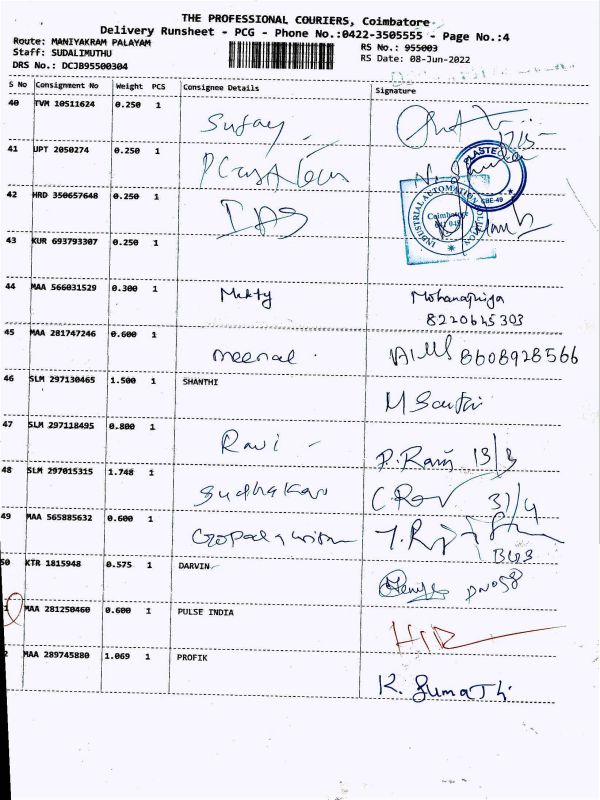 THE PROFESSIONAL COURIERS, Coimbatore
Delivery Runsheet - PCG - Phone No.:0422-3505555 - Page No.:4
Route: MANIYAKRAM PALAYAM RS No.: 955003
Staff: SUDALIMUTHU RS Date: 08-Jun-2022
DRS No.: DCJB95500304
S No Consignment No Weight PCS Consignee Details Signature
40 TVM 10511624 0.250 1
Sujay
41 UPT 2050274 0.250 1
PLASTE
42 HRD 350657648 0.250 1
INDUSTRIAL AUTOMATION
Coimbatore
CBE-49
43 KUR 693793307 0.250 1
44 MAA 566031529 0.300 1
Mukty Mohanapriya
8220645303
45 MAA 281747246 0.600 1
meenal 8608928566
46 SLM 297130465 1.500 1 SHANTHI
M
47 SLM 297118495 0.800 1
Ravi P. Ravi 13/3
48 SLM 297015315 1.748 1
Sudhakar 31/4
49 MAA 565885632 0.600 1
B43
50 KTR 1815948 0.575 1 DARVIN
MAA 281250460 0.600 1 PULSE INDIA
2 MAA 289745880 1.069 1 PROFIK
K. Sumathi